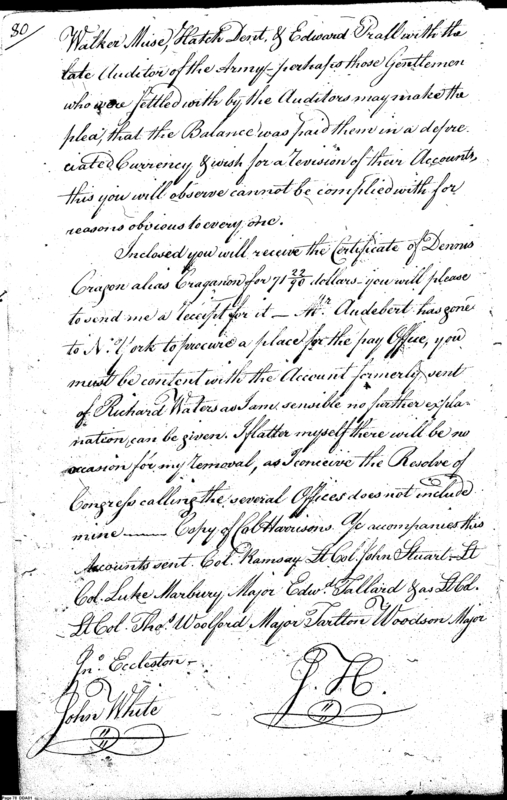 80
Walker Muse, Hatch Dent, & Edward Prall with the
late Auditor of the Army - perhaps those Gentlemen
who were settled with by the Auditors may make the
plea, that the Balance was paid them in a depre-
ciated Currency & wish for a revision of their Accounts,
this you will observe cannot be complied with for
reasons obvious to every one.
Inclosed you will receive the Certificate of Dennis
Cragon alias Craganon for 71 22/90 dollars you will please
to send me a receipt for it — Mr. Audebert has gone
to N. York to procure a place for the pay Office, you
must be content with the Account formerly sent
of Richard Waters as I am sensible no further expla-
nation can be given. I flatter myself there will be no
occasion for my removal, as I conceive the Resolve of
Congress calling the several Offices does not include
mine — Copy of Col Harrisons a/c accompanies this
Accounts sent. Col. Ramsay Lt Col. John Stuart - Lt
Col. Luke Marbury Major Edwd. Tallard & as Lt Col.
Lt Col. Thos. Woolford Major Tarlton Woodson Major
Jno. Eccleston -
J. H.
John White
Page 78 DDAR1